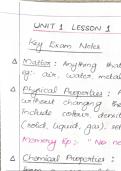 UNIT 1 LESSON 1
Key Exam Notes
Matter: Anything that
eg:- air, water, metal
Physical Properties:
without changing the
Include colour, densit
(solid, liquid, gas), so
Memory tip:- "No ne
Chemical Properties: